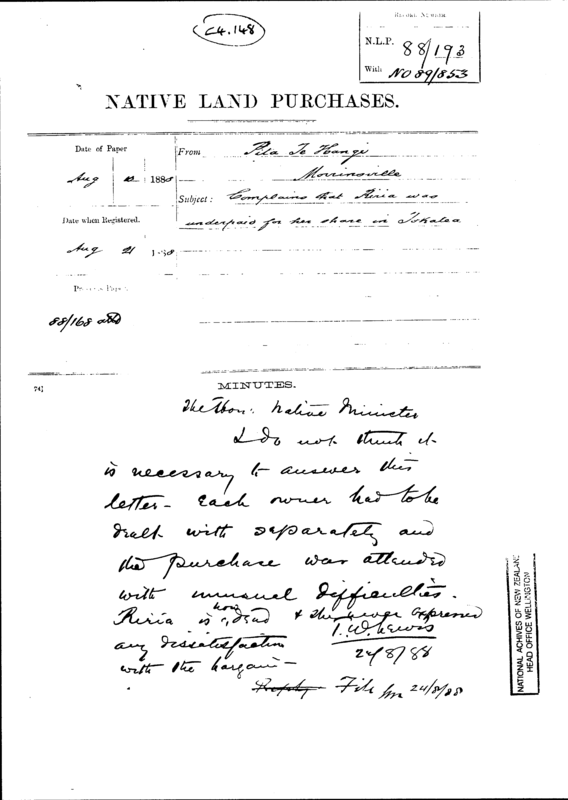 C4.148
N.L.P. 88/193
With NO 89/853
NATIVE LAND PURCHASES.
Date of Paper
Aug 1888
From Pita Te Hangi
Morrinsville
Subject: Complains that Riria was
underpaid for her share in
Date when Registered.
Aug 21
88/168
74]
MINUTES.
The Hon: Native Minister
I do not think it
is necessary to answer this
letter - Each owner had to be
dealt with separately and
the purchase was attended
with unusual difficulties.
Riria is now dead & she never expressed
any dissatisfaction
with the bargain -
T.W. Lewis
24/8/88
Reply File 24/8/88
NATIONAL ACHIVES OF NEW ZEALAND
HEAD OFFICE WELLINGTON